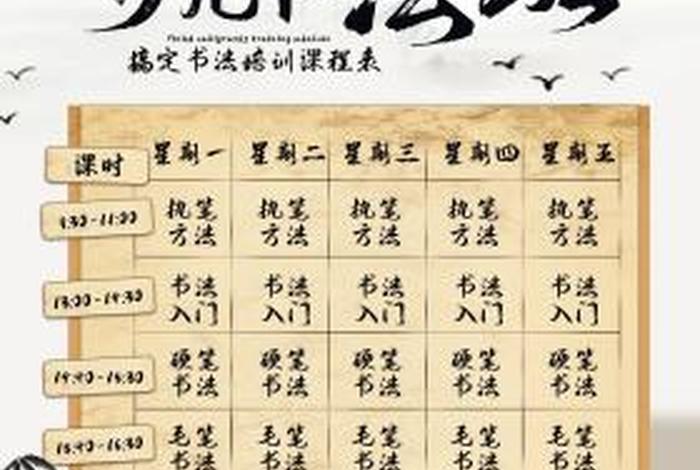 搞定书法培训课程表
课时 星期一 星期二 星期三 星期四 星期五
9:30-11:00 执笔方法 执笔方法 执笔方法 执笔方法 执笔方法
13:00-14:30 书法入门 书法入门 书法入门 书法入门 书法入门
硬笔书法 硬笔书法 硬笔书法 硬笔书法 硬笔书法
毛笔书法 毛笔书法 毛笔书法 毛笔书法 毛笔书法